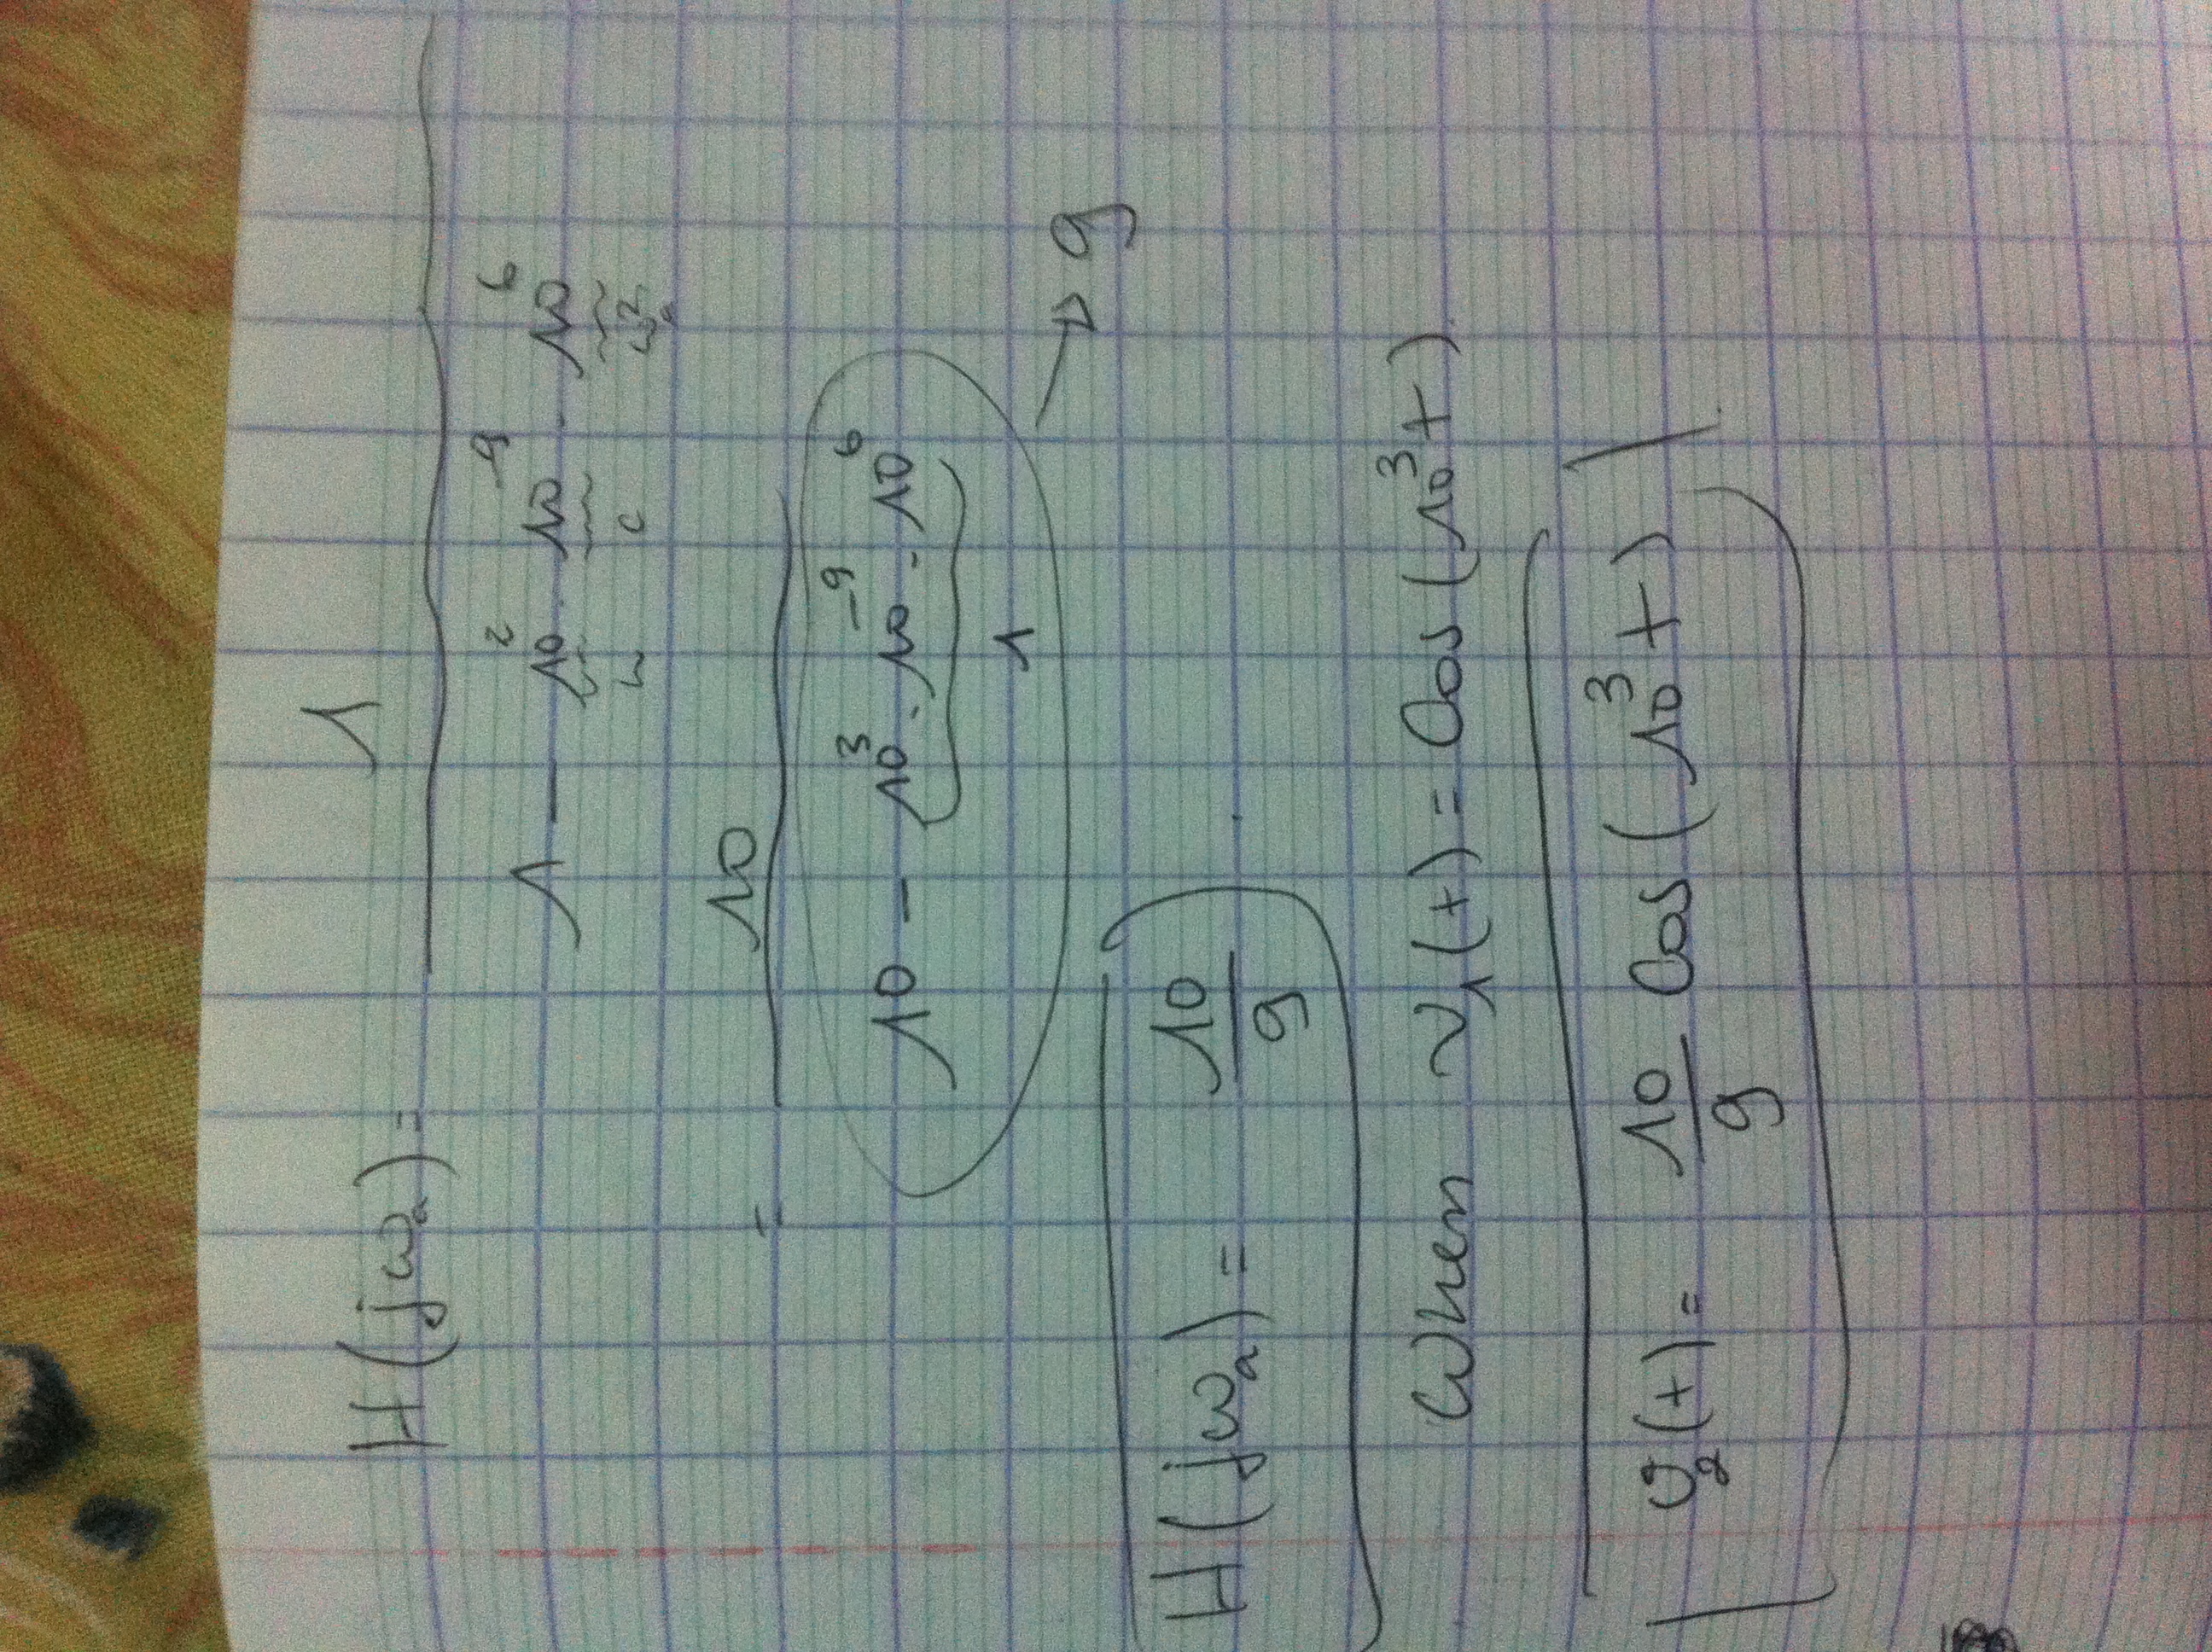 H(jωₐ) = 1 / (1 − 10² · 10⁻⁹ · 10⁶)
L C ωₐ²
= 10 / (10 − 10³ · 10⁻⁹ · 10⁶)
1 → 9
H(jωₐ) = 10/9
When v₁(t) = Cos(10³t)
v₂(t) = 10/9 Cos(10³t)